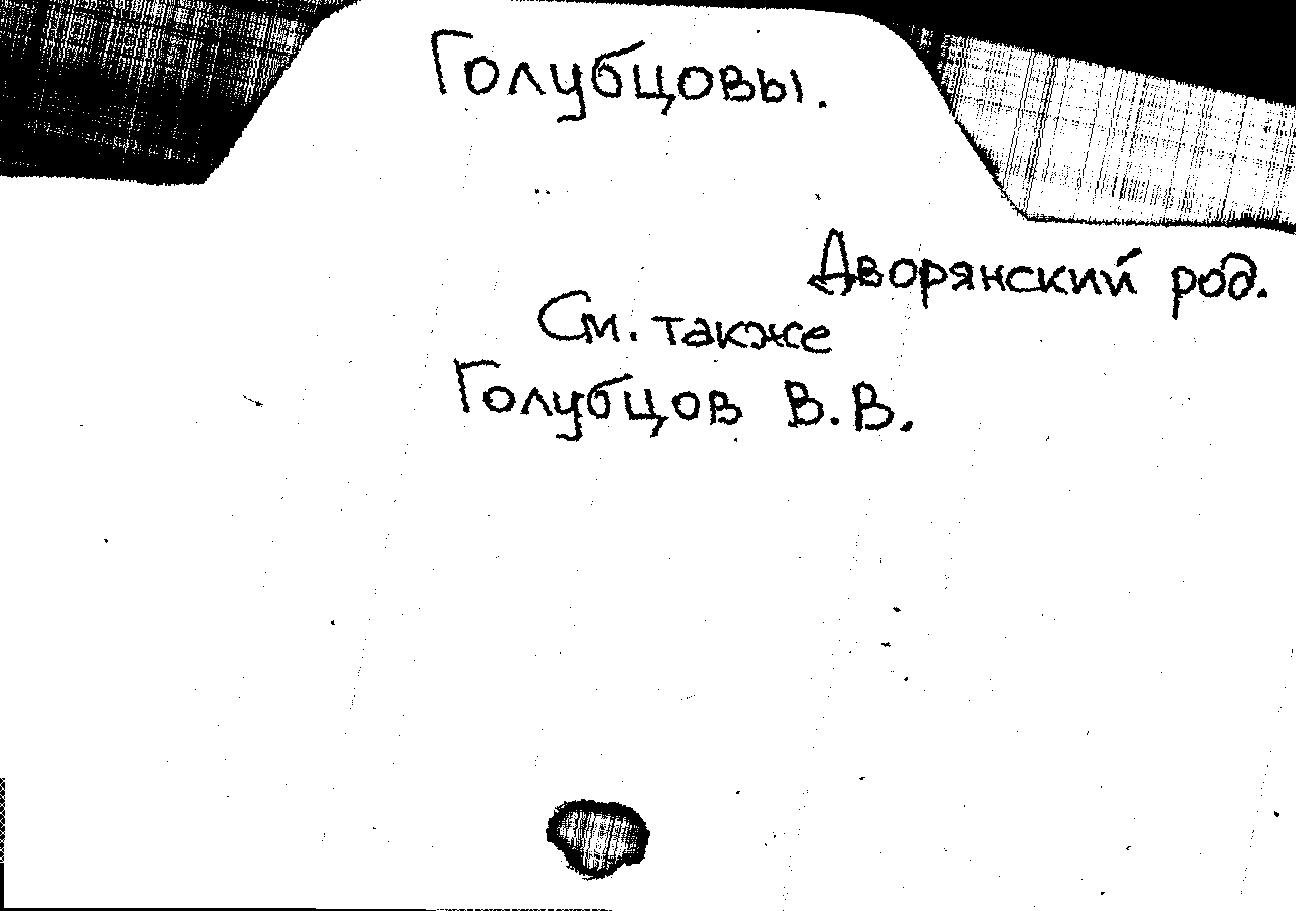 Голубцовы.
Дворянский род.
См. также
Голубцов В.В.